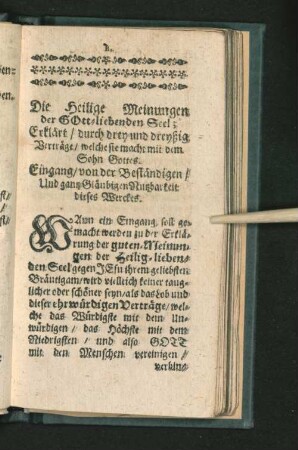 1.
Die Heilige Meinungen
der GOtt-liebenden Seel;
Erklärt / durch drey und dreyßig
Verträge / welche sie macht mit dem
Sohn Gottes.
Eingang / von der Beständigen /
Und gantz Gläubigen Nutzbarkeit
dieses Werckes.
WAnn ein Eingang soll ge-
macht werden zu der Erklä-
rung der guten Meinun-
gen der Heilig-lieben-
den Seel gegen JEsu ihrem geliebsten
Bräutigam / wird villeich keiner taug-
licher oder schöner seyn / als das Lob und
dieser ehrwürdigen Verträge / wel-
che das Würdigste mit dem Un-
würdigen / das Höchste mit dem
Niedrigsten / und also GOTT
mit den Menschen vereinigen /
verbin-